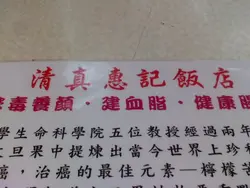 清真惠記飯店
毒養顏·建血脂·健康
學生命科學院五位教授經過兩年
旦果中提煉出當今世界上珍稀
癌,治癌的最佳元素—檸檬